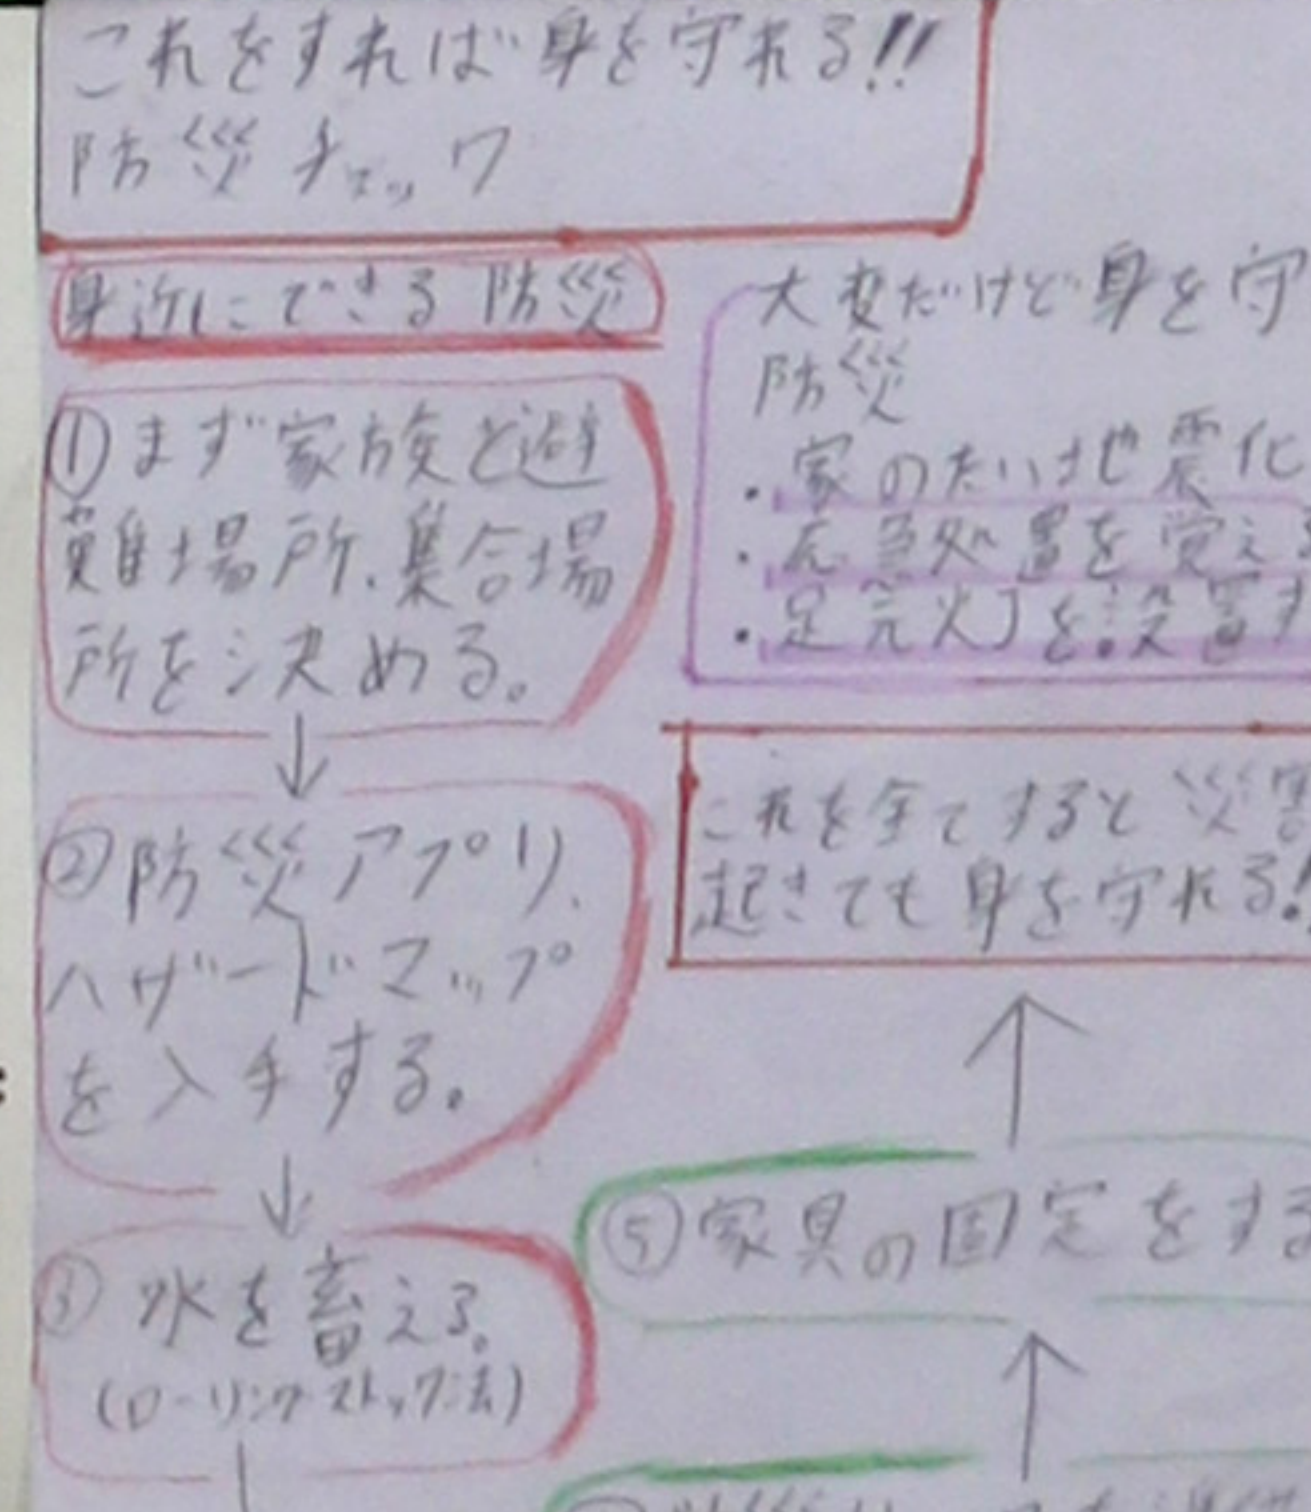 これをすれば身を守れる!!
防災チェック
身近にできる防災
①まず家族と避
難場所、集合場
所を決める。
②防災アプリ、
ハザードマップ
を入手する。
③水を畜える。
(ローリングストック法)
大変だけど身を守
防災
・家のたいは地震化
・応急処置を覚える
・足元火丁を設置す
これを全てすると災害
起きても身を守れる!
⑤家具の固定をする